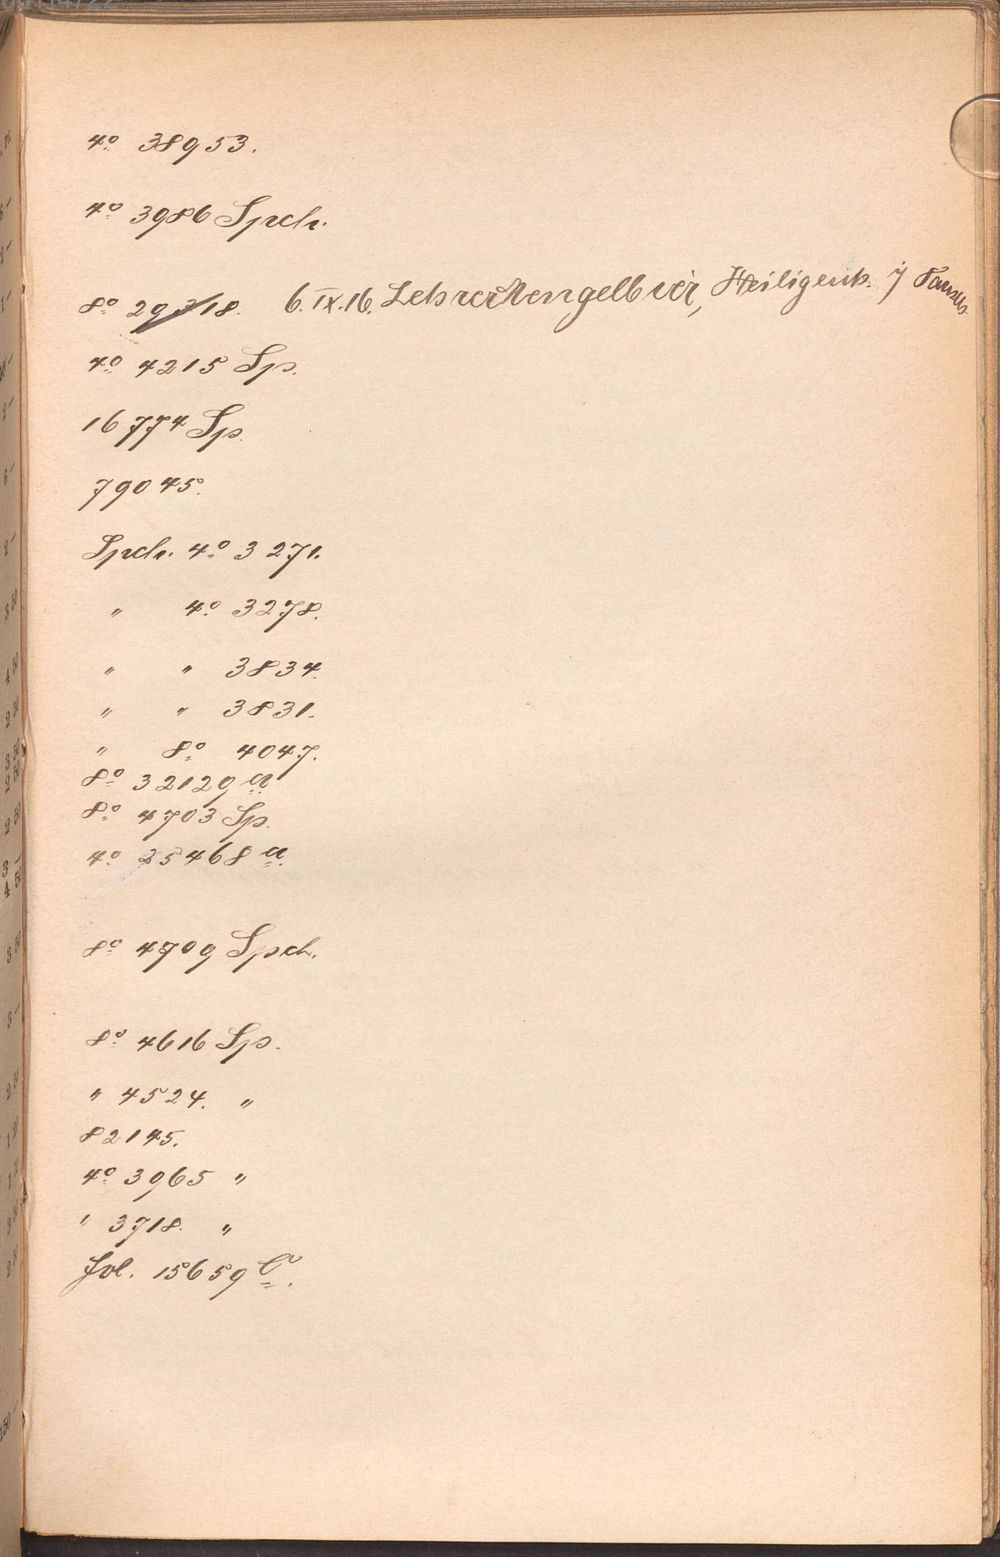 4º 38953.
4º 3986 Spch.
8º 29318. 6.IX.16. Lehrer Hengelbier, Heiligent.
4º 4215 Sp.
16774 Sp.
79045.
Spch. 4º 3271.
" 4º 3278.
" " 3834.
" " 3831.
" 8º 4047.
8º 32129 a.
8º 4703 Sp.
4º 25468 a.
8º 4709 Spch.
8º 4616 Sp.
" 4524. "
82145.
4º 3965 "
" 3718. "
fol. 15659